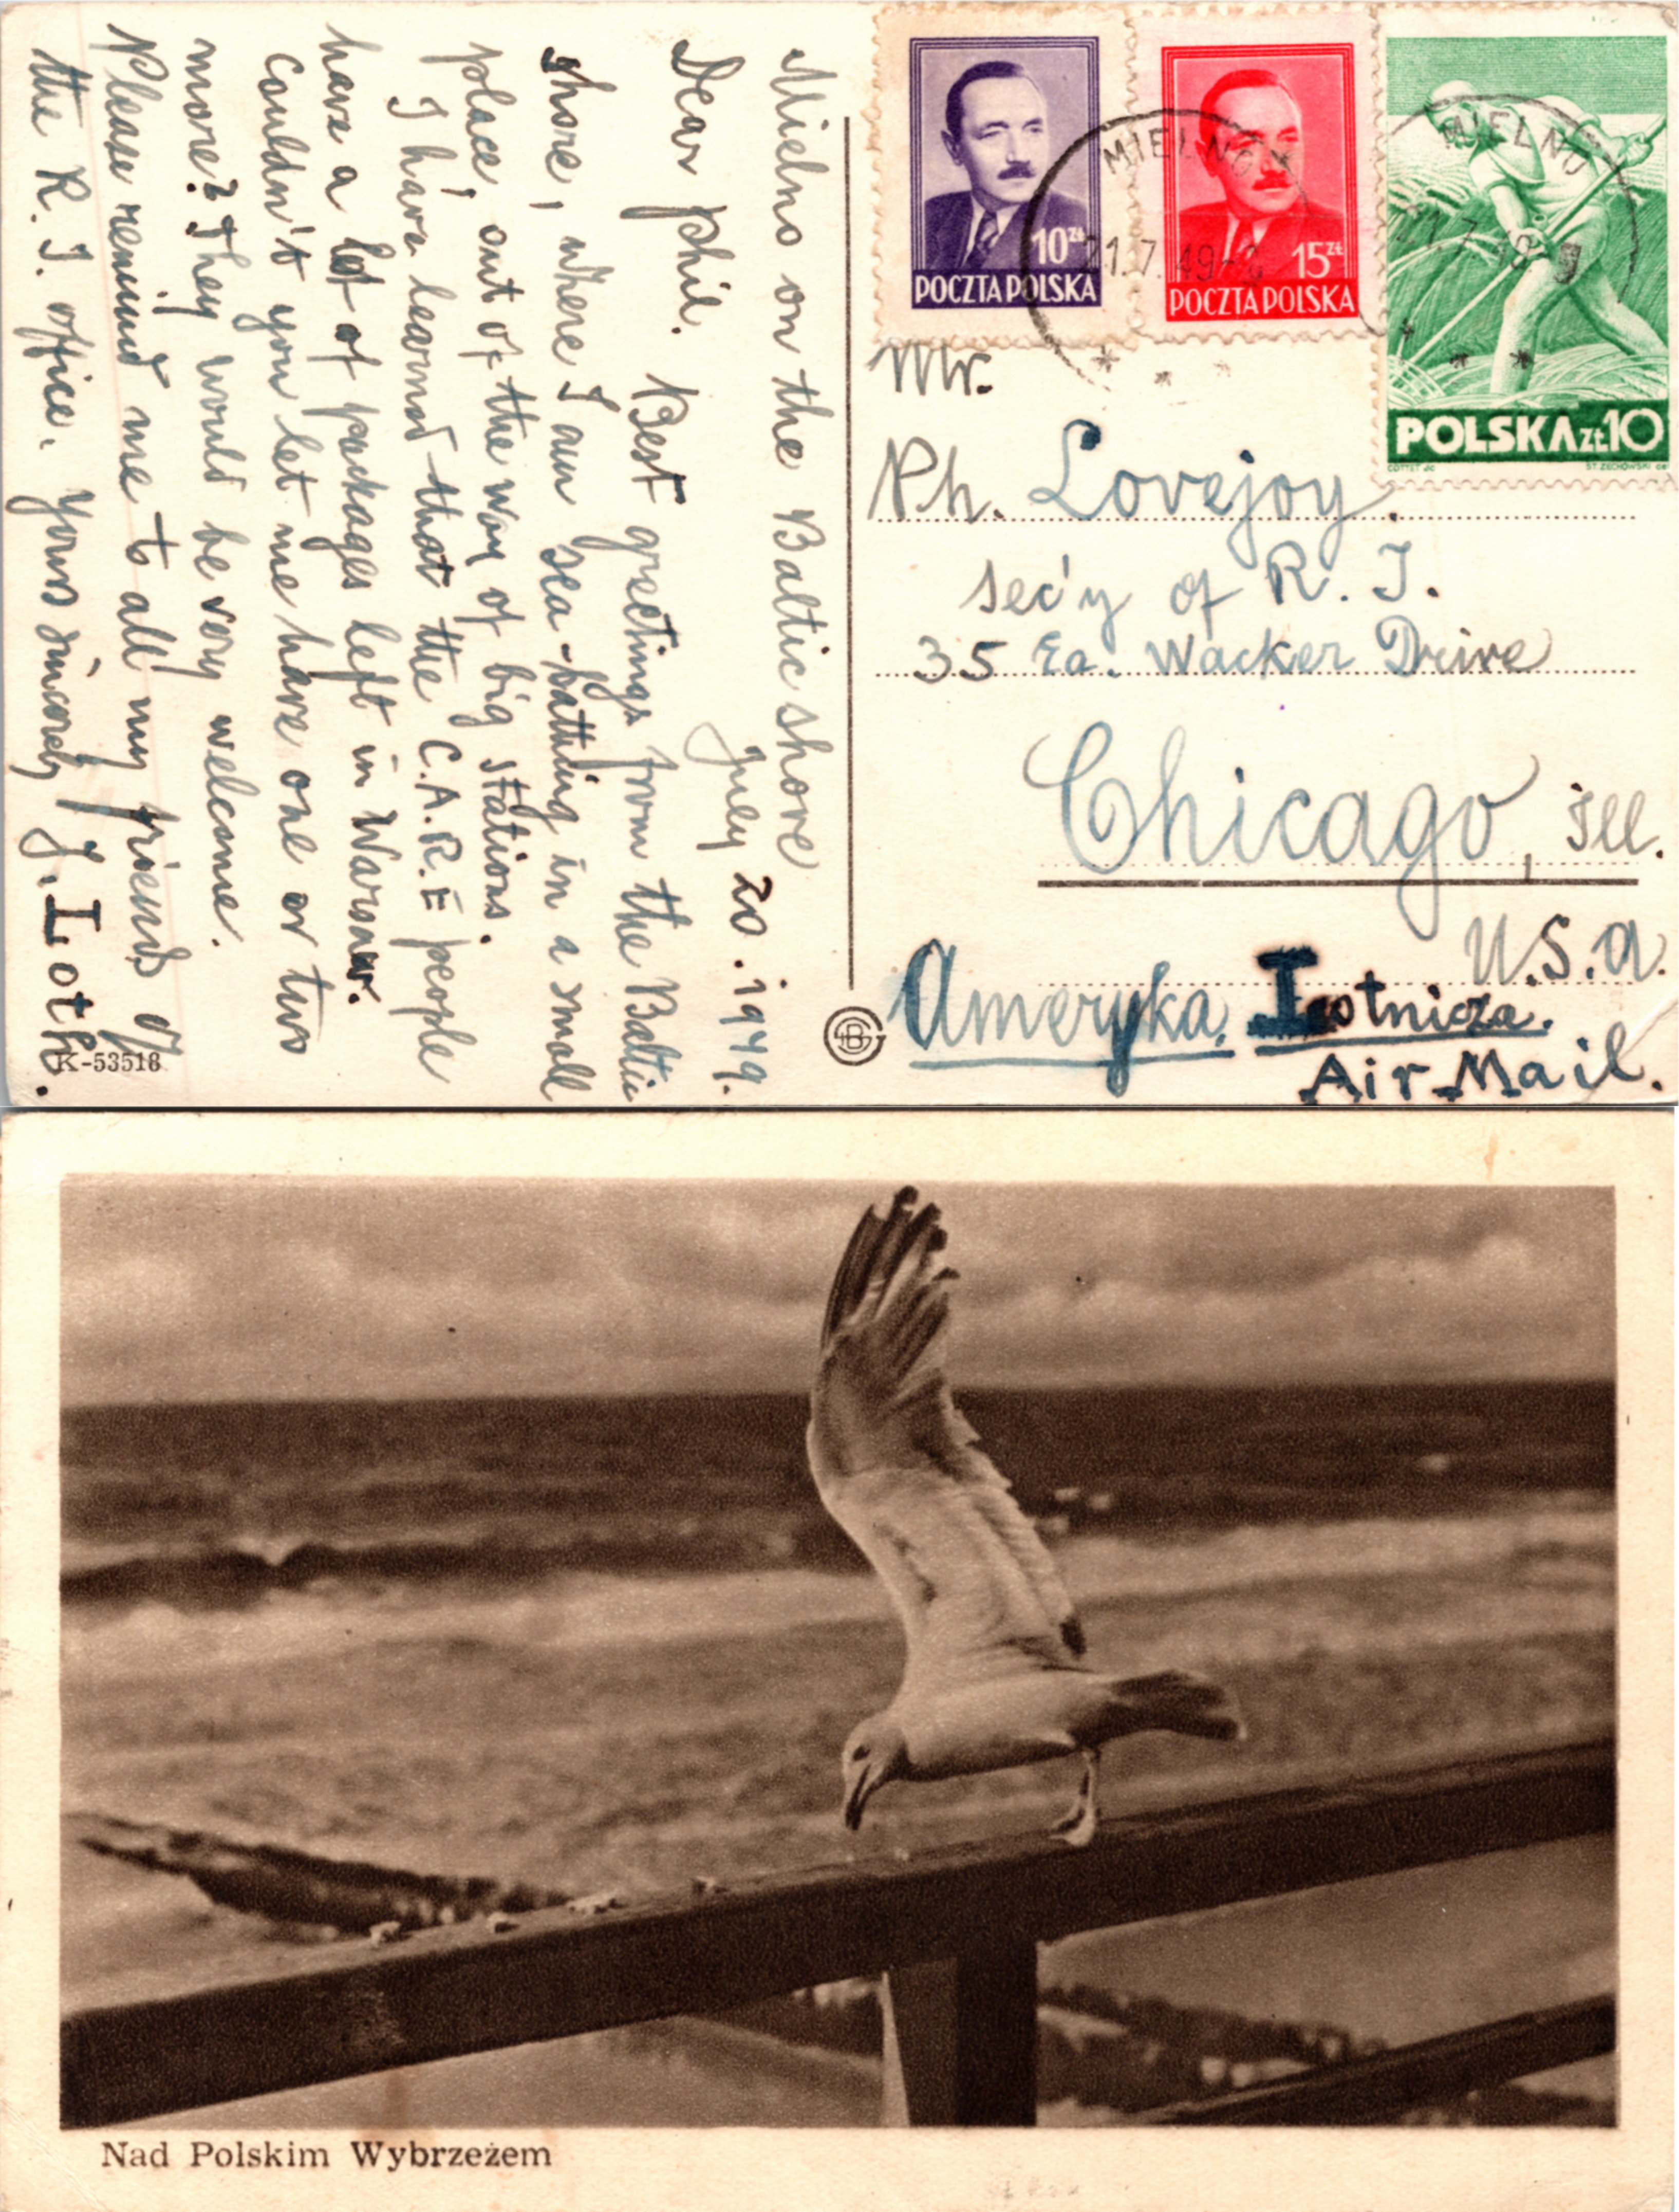 Mielno on the Baltic shore
July 20. 1949.
Dear Phil. Best greetings from the Baltic
shore, where I am sea-bathing in a small
place, out of the way of big stations.
I have learned that the C.A.R.E people
have a lot of packages left in Warsaw.
Couldn't you let me have one or two
more? They would be very welcome.
Please remind me to all my friends of
the R. I. office. Yours sincerely J. Loth.
K-53518
10zł
POCZTA POLSKA
15zł
POCZTA POLSKA
POLSKA ZŁ 10
ST. ŻECHOWSKI
MIELNO
21.7.49
MIELNO
21.7.49
Mr.
Ph. Lovejoy.
Sec'y of R. I.
35 Ea. Wacker Drive
Chicago, Ill.
U.S.A.
Ameryka. Lotnicza.
Air-Mail.
Nad Polskim Wybrzeżem